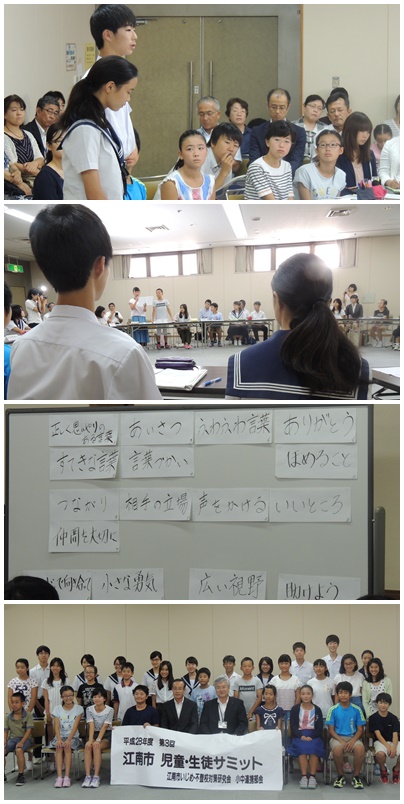 正しく思いやりの
ある言葉
あいさつ
ふわふわ言葉
ありがとう
すてきな言葉
言葉づかい
ほめること
つながり
相手の立場
声をかける
いいところ
仲間を大切に
小さな勇気
広い視野
平成28年度 第3回
江南市 児童・生徒サミット
江南市いじめ・不登校対策研究会 小中連携部会